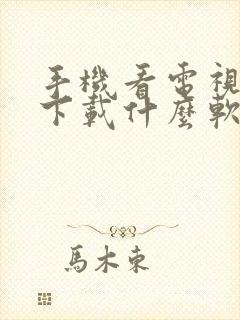 手機看電視
下載什麼軟
馬木東